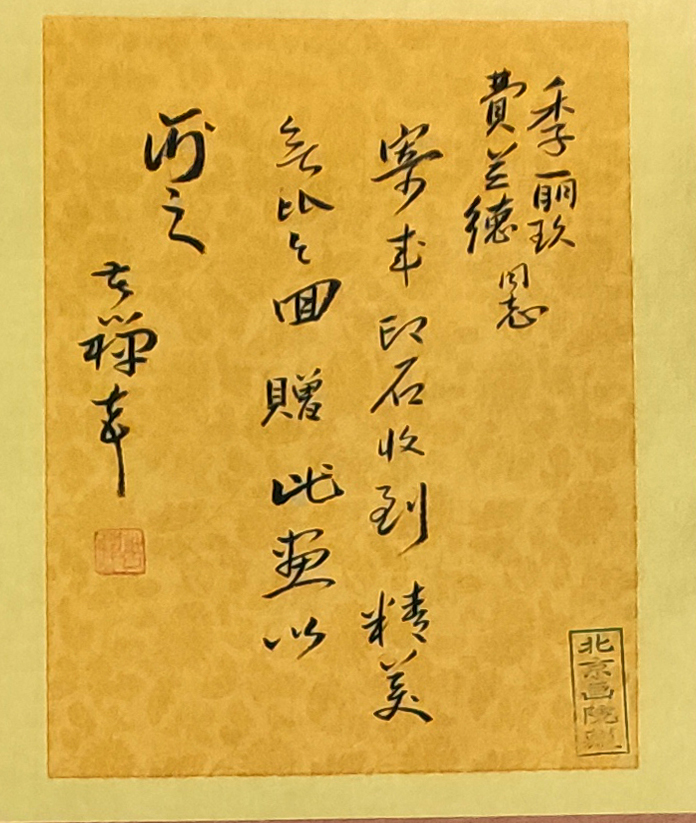 季丽玖
費兰德 同志
寄来印石收到精美
無比今回贈此画以
谢之
古禅奉
北京画院